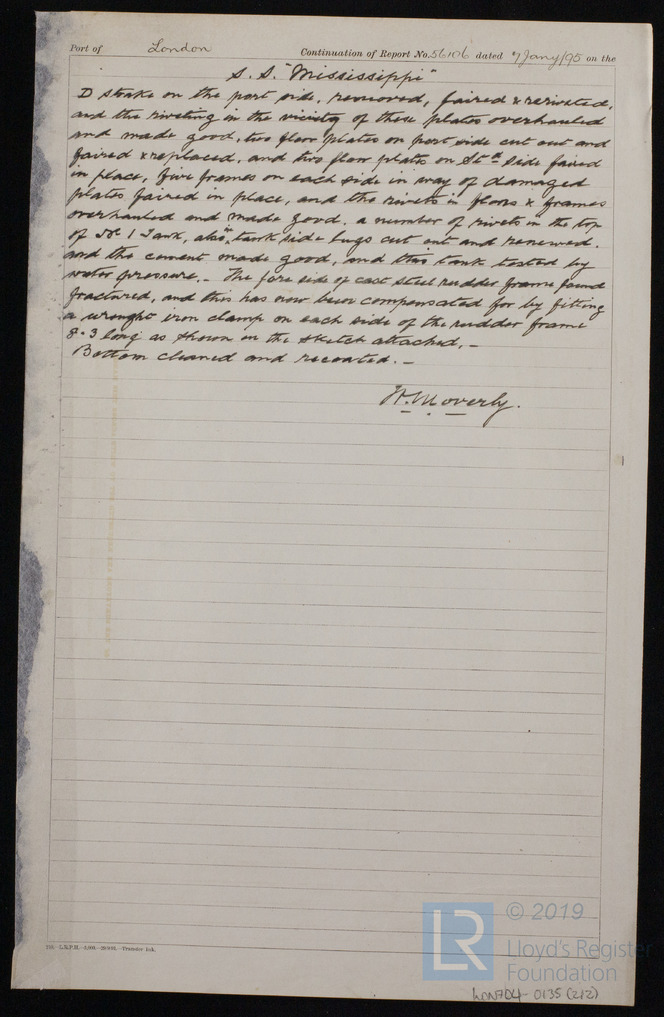 Port of London Continuation of Report No. 56106 dated 7 Jany/95 on the
S. S. "Mississippi"
D strake on the port side, removed, faired & reriveted,
and the riveting in the vicinity of these plates overhauled
and made good, two floor plates on port side cut out and
faired & replaced, and two floor plates on Stbd side faired
in place, five frames on each side in way of damaged
plates faired in place, and the rivets in floors & frames
overhauled and made good. a number of rivets in the top
of No 1 Tank, also in tank side lugs cut out and renewed.
and the cement made good, and this tank tested by
water pressure. - The fore side of cast steel rudder frame found
fractured, and this has now been compensated for by fitting
a wrought iron clamp on each side of the rudder frame
8.3 long as shown in the sketch attached. -
Bottom cleaned and recoated. -
W. Moverly.
Transfer Ink.
LR
© 2019
Lloyd's Register
Foundation
LRF-0135 (212)